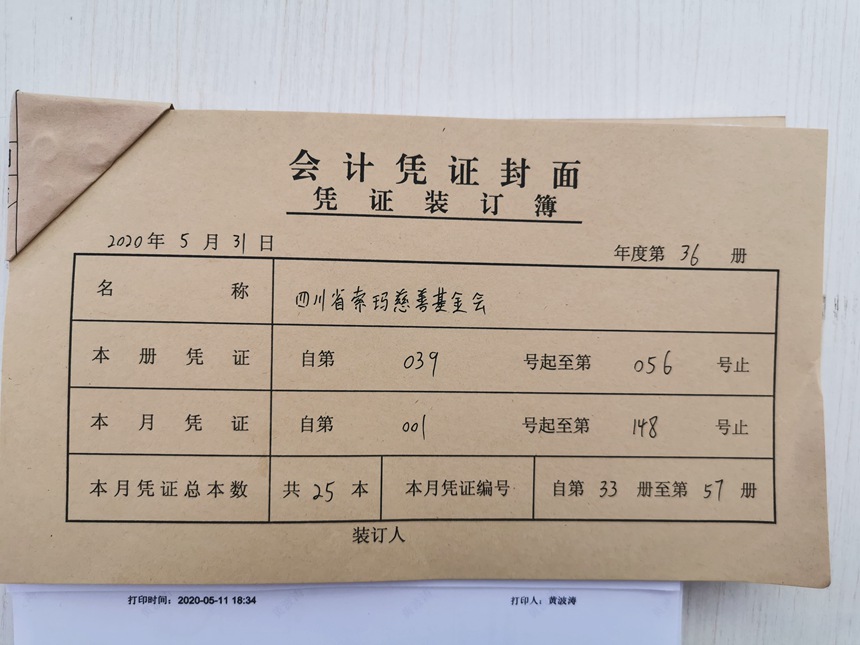 会计凭证封面
凭证装订簿
2020年5月31日 年度第36册
名称 四川省索玛慈善基金会
本册凭证 自第039号起至第056号止
本月凭证 自第001号起至第148号止
本月凭证总本数 共25本 本月凭证编号 自第33册至第57册
装订人
打印时间：2020-05-11 18:34 打印人：黄波涛